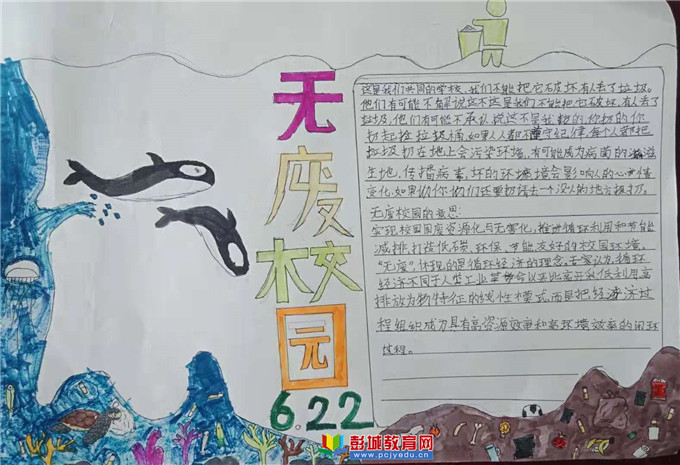 无
废
校
园
6.22
这是我们共同的学校,我们不能把它破坏,有人丢了垃圾。
他们有可能不承认说这不这是我们不能把它破坏,有人丢了
垃圾,他们有可能不承认说这不是我扔的,你扔的你
扔起捡垃圾桶,如果人人都不遵守纪律,每个人都把
垃圾扔在地上会污染环境,有可能成为病菌的滋
生地,传播病毒,坏的环境会影响人的心情
变化,如果你你们还要扔请去一个没人的地方扔。
无废校园的意思:
实现校园固废资源化与无害化,推进循环利用和节能
减排,打造低碳、环保、节能友好的校园环境。
"无废",体现的是循环经济的理念,专家认为,循环
经济不同于人类工业革命以来开采低利用高
排放为特征的线性模式,而是把经济过
程组织成为具有高资源效率和高环境效率的闭环
过程。
彭城教育网
www.pcjyedu.cn